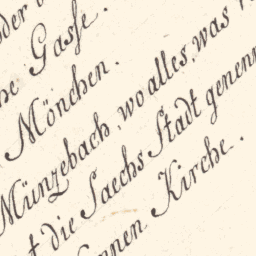 der
he Gasse.
Mönchen.
Münzebach, wo alles, was
die Saechs Stadt genenn
nnen Kirche.